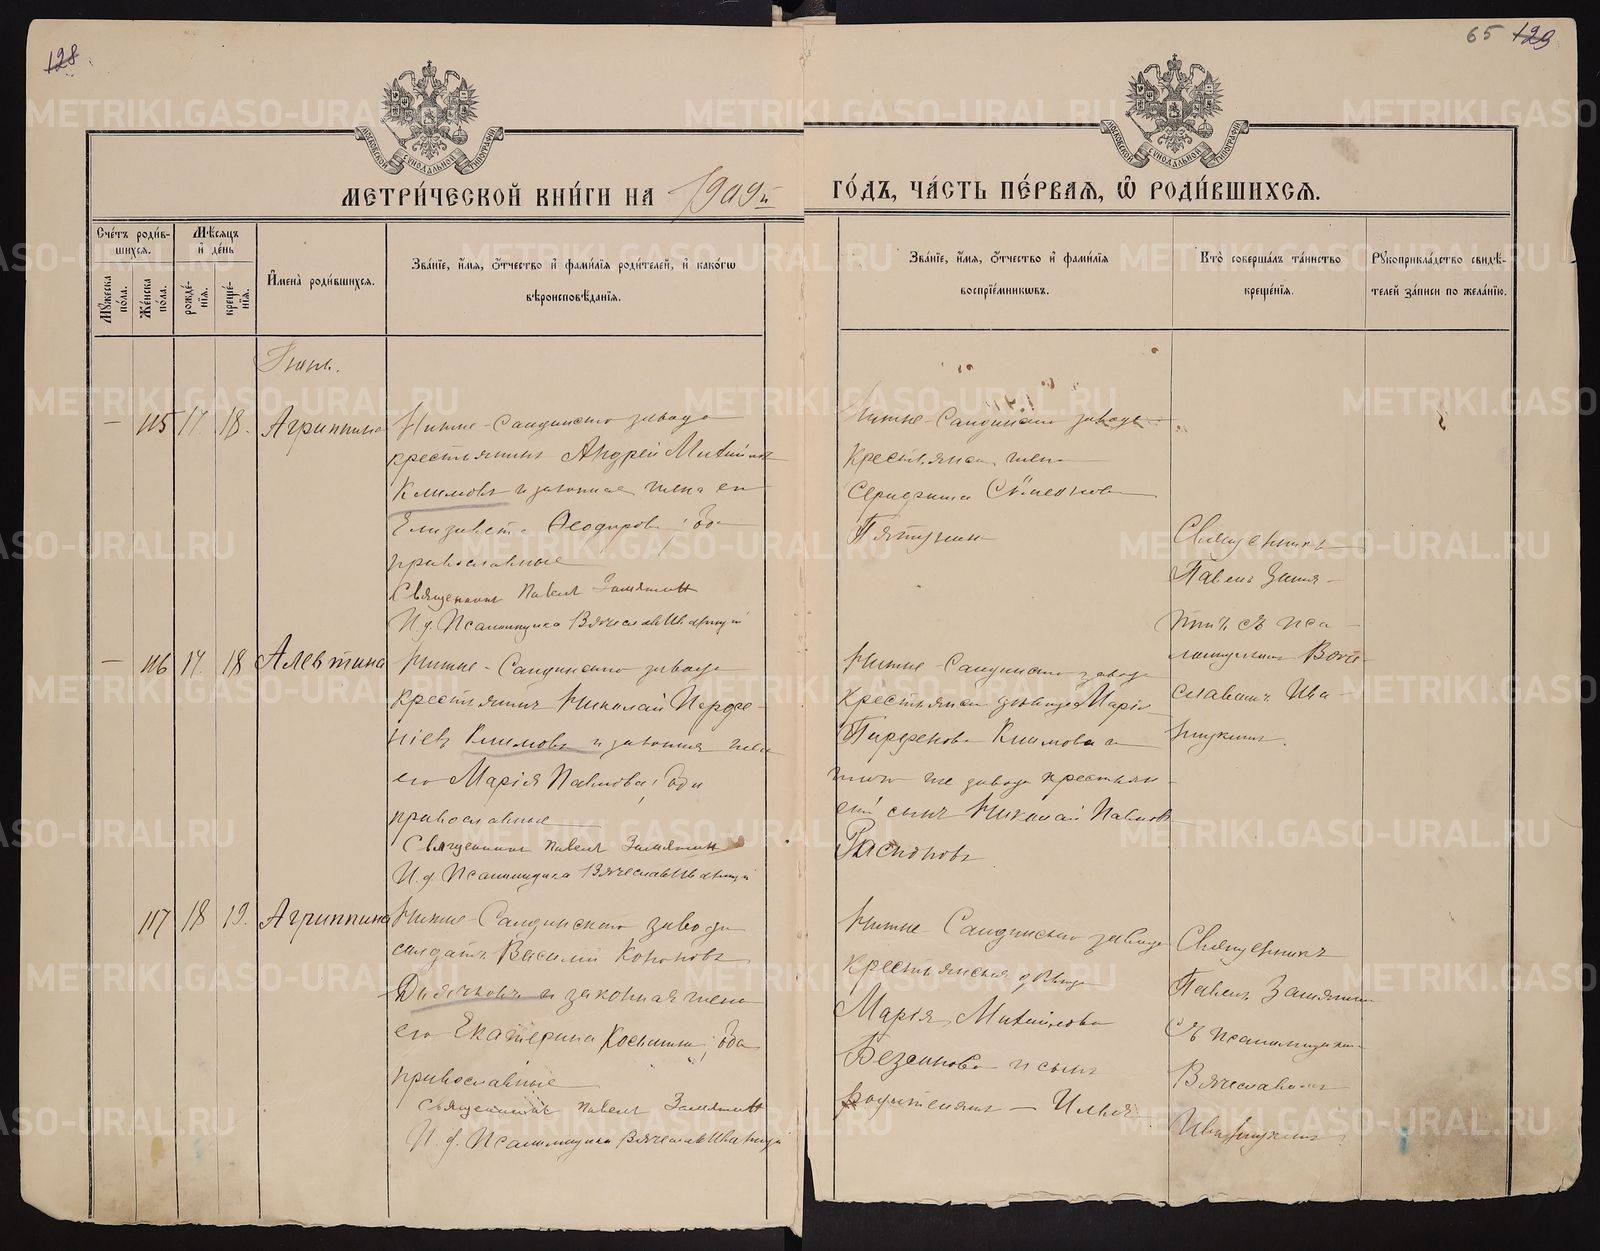 128
65 129
МОСКОВСКОЙ СѴНОДАЛЬНОЙ ТИПОГРАФІИ
МОСКОВСКОЙ СѴНОДАЛЬНОЙ ТИПОГРАФІИ
МЕТРИ́ЧЕСКОЙ КНИ́ГИ НА 1909й
ГО́ДЪ, ЧА́СТЬ ПЕ́РВАЯ, Ѡ РОДИ́ВШИХСЯ.
Сче́тъ роди́в-
шихся.
Мѣ́сяцъ
и҆ де́нь
Мꙋжеска по́ла.
Же́нска по́ла.
рожде́-
нїя.
креще́-
нїя.
И҆мена̀ роди́вшихся.
Зва́нїе, и҆́мя, ѻ҆́тчество и҆ фами́лїя роди́телей, и҆ како́гѡ
вѣроисповѣ́данїя.
Зва́нїе, и҆́мя, ѻ҆́тчество и҆ фами́лїя
воспрїе́мникѡвъ.
Кто̀ соверша́лъ та́инство
креще́нїя.
Рꙋкоприкла́дство свидѣ́-
телей за́писи по жела́нїю.
Іюнь.
— 115 17. 18. Агриппина
Нижне-Салдинскаго завода
крестьянинъ Андрей
Климовъ и законная жена его
Елизавета Ѳеодорова; оба
православные
Священникъ Павелъ Замятинъ
И. д. Псаломщика Вячеславъ Иваницкій
Нижне-Салдинскаго завода
крестьянска жена
Серафима Симеонова
Священникъ
Павелъ Замя-
тинъ съ пса-
ломщикомъ Вяче-
славомъ Ива-
ницкимъ.
— 116 17. 18 Алевтина
Нижне-Салдинскаго завода
крестьянинъ Николай Парфе-
ніевъ Климовъ и законная жена
его Марія Павлова; оба
православные
Священникъ Павелъ Замятинъ
И. д. Псаломщика Вячеславъ Иваницкій
Нижне-Салдинскаго завода
крестьянская дѣвица Марія
Парфенова Климова и
того же завода крестьян-
скій сынъ Николай Павловъ
117 18 19. Агриппина
Нижне-Салдинскаго завода
солдатъ Василій Кононовъ
и законная жена
его Екатерина; оба
православные
Священникъ Павелъ Замятинъ
И. д. Псаломщика Вячеславъ Иваницкій
Нижне Салдинскаго завода
крестьянская дѣвица
Марія
и сынъ
родителямъ — Илья
Священникъ
Павелъ Замятинъ
съ псаломщикомъ
Вячеславомъ
Иваницкимъ
METRIKI.GASO-URAL.RU